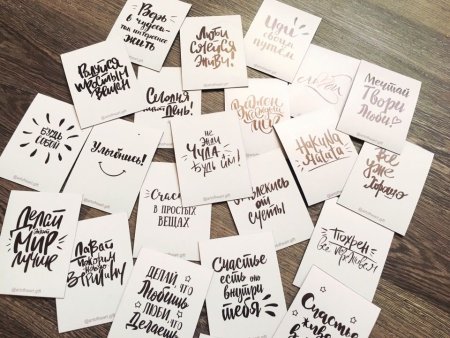 Верь
в чудеса
так интереснее
жить
Люби
смейся
живи!
Иди
своим
путём
Радуйся
простым
вещам
Сегодня
твой
день!
Мечтай
Твори
Люби!
Будь
собой
Улыбнись!
не жди
Чуда
Будь им!
Хакуна
Матата
всё
уже
хорошо
Счастье
в простых
вещах
Отвлекись
от
суеты
Делай
этот
Мир
лучше
@artofheart.gift
Давай
покорим
новую
вершину
Делай, что
Любишь
люби, что
Делаешь
Счастье
есть оно
внутри
тебя
Счастье